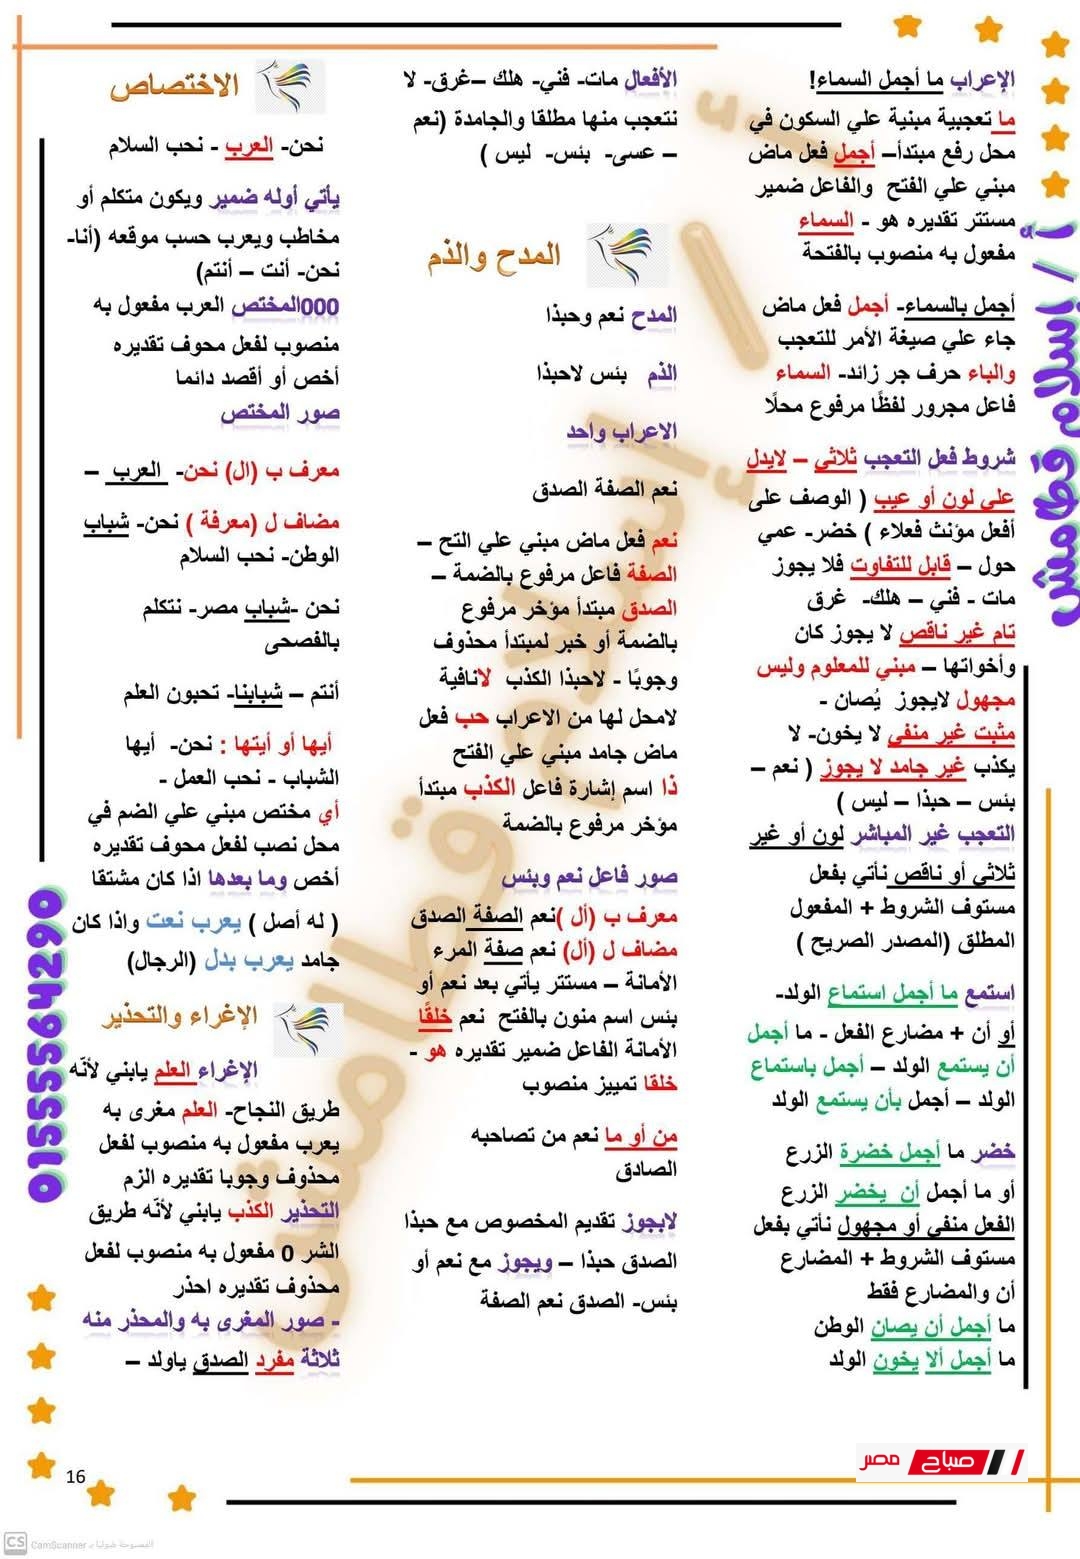 الإعراب ما أجمل السماء!
ما تعجبية مبنية علي السكون في
محل رفع مبتدأ– أجمل فعل ماض
مبني علي الفتح والفاعل ضمير
مستتر تقديره هو - السماء
مفعول به منصوب بالفتحة
أجمل بالسماء- أجمل فعل ماض
جاء علي صيغة الأمر للتعجب
والباء حرف جر زائد- السماء
فاعل مجرور لفظًا مرفوع محلًا
شروط فعل التعجب ثلاثي – لايدل
علي لون أو عيب ( الوصف على
أفعل مؤنث فعلاء ) خضر- عمي
حول – قابل للتفاوت فلا يجوز
مات - فني – هلك- غرق
تام غير ناقص لا يجوز كان
وأخواتها – مبني للمعلوم وليس
مجهول لايجوز يُصان -
مثبت غير منفي لا يخون- لا
يكذب غير جامد لا يجوز ( نعم –
بئس – حبذا – ليس )
التعجب غير المباشر لون أو غير
ثلاثي أو ناقص نأتي بفعل
مستوف الشروط + المفعول
المطلق (المصدر الصريح )
استمع ما أجمل استماع الولد-
أو أن + مضارع الفعل - ما أجمل
أن يستمع الولد – أجمل باستماع
الولد – أجمل بأن يستمع الولد
خضر ما أجمل خضرة الزرع
أو ما أجمل أن يخضر الزرع
الفعل منفي أو مجهول نأتي بفعل
مستوف الشروط + المضارع
أن والمضارع فقط
ما أجمل أن يصان الوطن
ما أجمل ألا يخون الولد
الأفعال مات- فني- هلك –غرق- لا
نتعجب منها مطلقا والجامدة (نعم
– عسى- بئس- ليس )
المدح والذم
المدح نعم وحبذا
الذم بئس لاحبذا
الاعراب واحد
نعم الصفة الصدق
نعم فعل ماض مبني علي التح –
الصفة فاعل مرفوع بالضمة –
الصدق مبتدأ مؤخر مرفوع
بالضمة أو خبر لمبتدأ محذوف
وجوبًا - لاحبذا الكذب لانافية
لامحل لها من الاعراب حب فعل
ماض جامد مبني علي الفتح
ذا اسم إشارة فاعل الكذب مبتدأ
مؤخر مرفوع بالضمة
صور فاعل نعم وبئس
معرف ب (أل )نعم الصفة الصدق
مضاف ل (أل) نعم صفة المرء
الأمانة – مستتر يأتي بعد نعم أو
بئس اسم منون بالفتح نعم خلقًا
الأمانة الفاعل ضمير تقديره هو -
خلقا تمييز منصوب
من أو ما نعم من تصاحبه
الصادق
لايجوز تقديم المخصوص مع حبذا
الصدق حبذا – ويجوز مع نعم أو
بئس- الصدق نعم الصفة
الاختصاص
نحن- العرب - نحب السلام
يأتي أوله ضمير ويكون متكلم أو
مخاطب ويعرب حسب موقعه (أنا-
نحن- أنت – أنتم)
000المختص العرب مفعول به
منصوب لفعل محوف تقديره
أخص أو أقصد دائما
صور المختص
معرف ب (ال) نحن- العرب –
مضاف ل (معرفة ) نحن- شباب
الوطن- نحب السلام
نحن -شباب مصر- نتكلم
بالفصحى
أنتم – شبابنا- تحبون العلم
أيها أو أيتها : نحن- أيها
الشباب - نحب العمل -
أي مختص مبني علي الضم في
محل نصب لفعل محوف تقديره
أخص وما بعدها اذا كان مشتقا
( له أصل ) يعرب نعت واذا كان
جامد يعرب بدل (الرجال)
الإغراء والتحذير
الإغراء العلم يابني لأنّه
طريق النجاح- العلم مغرى به
يعرب مفعول به منصوب لفعل
محذوف وجوبا تقديره الزم
التحذير الكذب يابني لأنّه طريق
الشر 0 مفعول به منصوب لفعل
محذوف تقديره احذر
- صور المغرى به والمحذر منه
ثلاثة مفرد الصدق ياولد –
أ / إسلام قطامش
أ / إسلام قطامش
01555564290
صباح مصر
16
CS CamScanner الممسوحة ضوئيا بـ